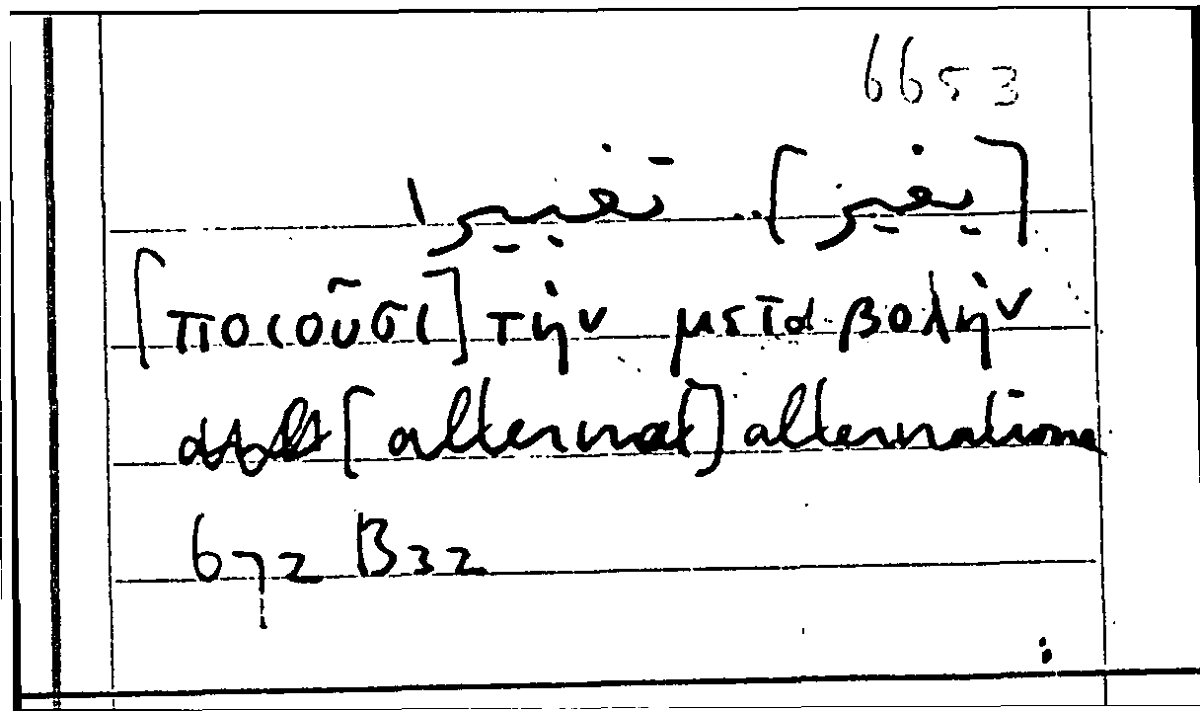 6653
[يغير] .. تغييرا
[ποιοῦσι] τὴν μεταβολὴν
[alternat] alternatione
672 B32